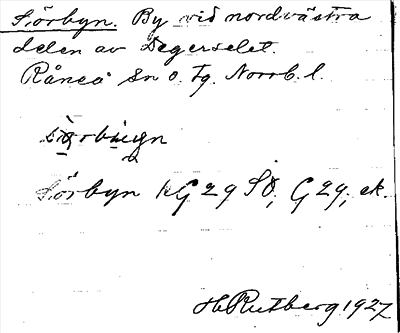 Sörbyn. By vid nordvästra
delen av Degerselet.
Råneå Sn o. Tg. Norrb. l.
Sörbyn KG 29 SO, G 29; ek.
H Rutberg 1927